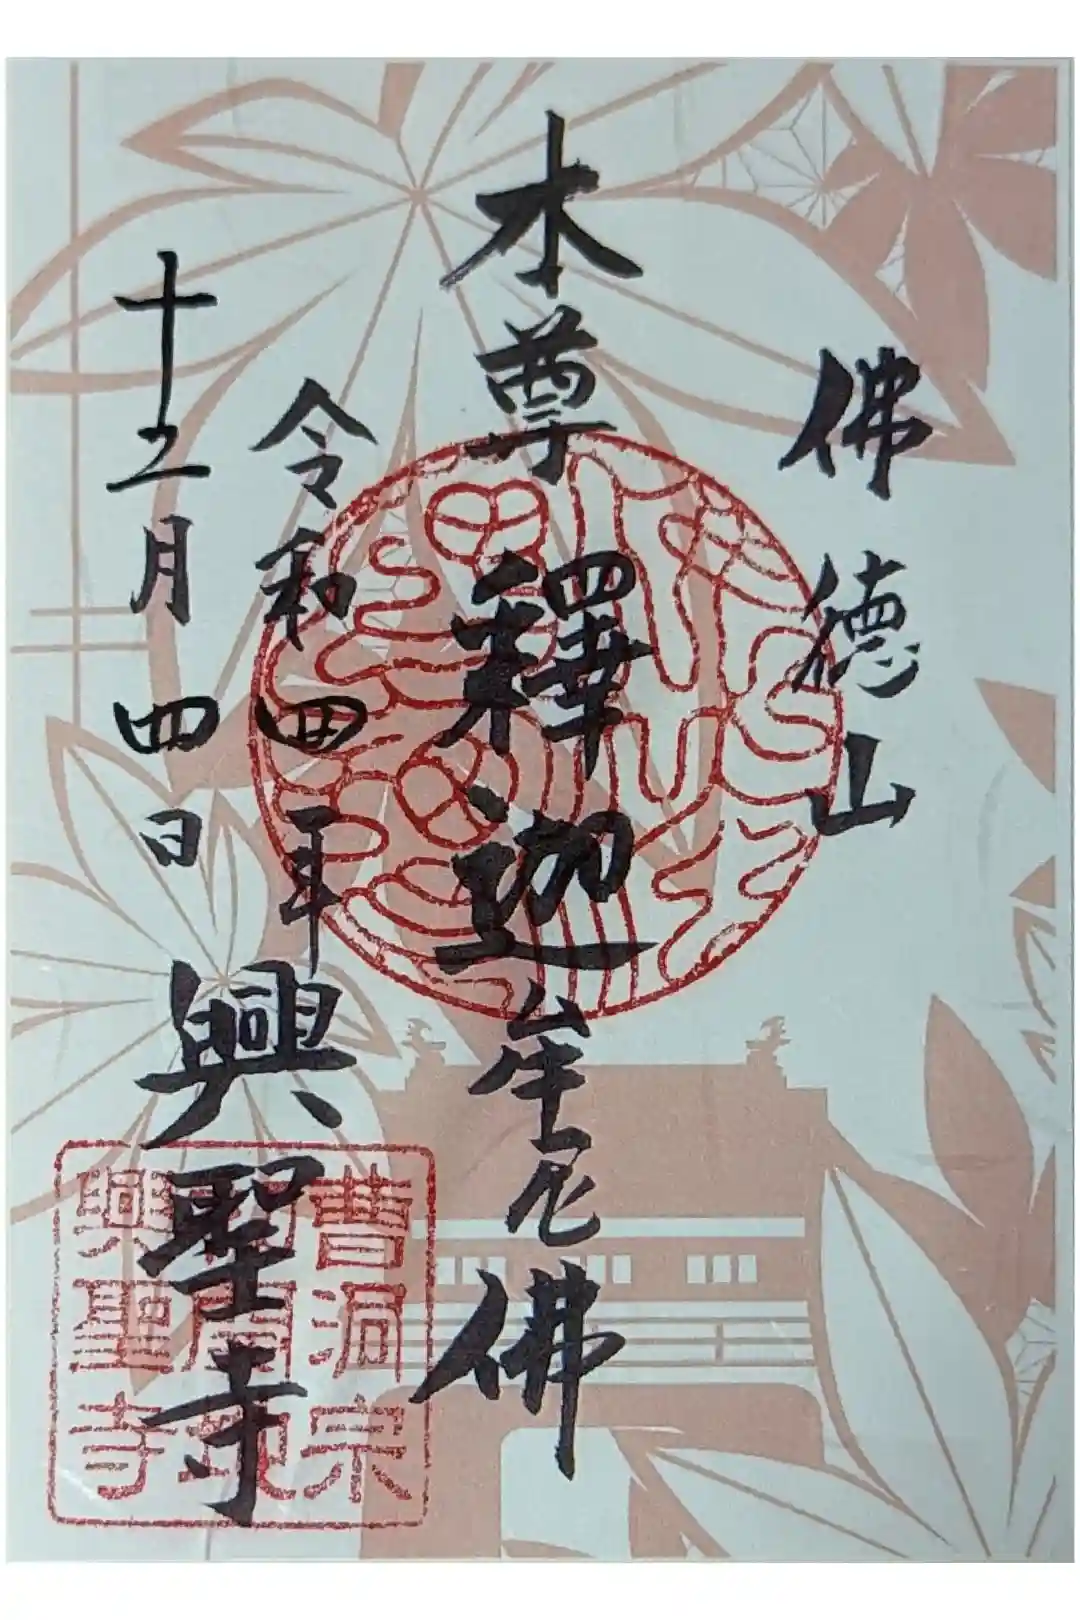 佛徳山
本尊釋迦牟尼佛
令和四年
十二月四日
興聖寺
曹洞宗
興聖寺